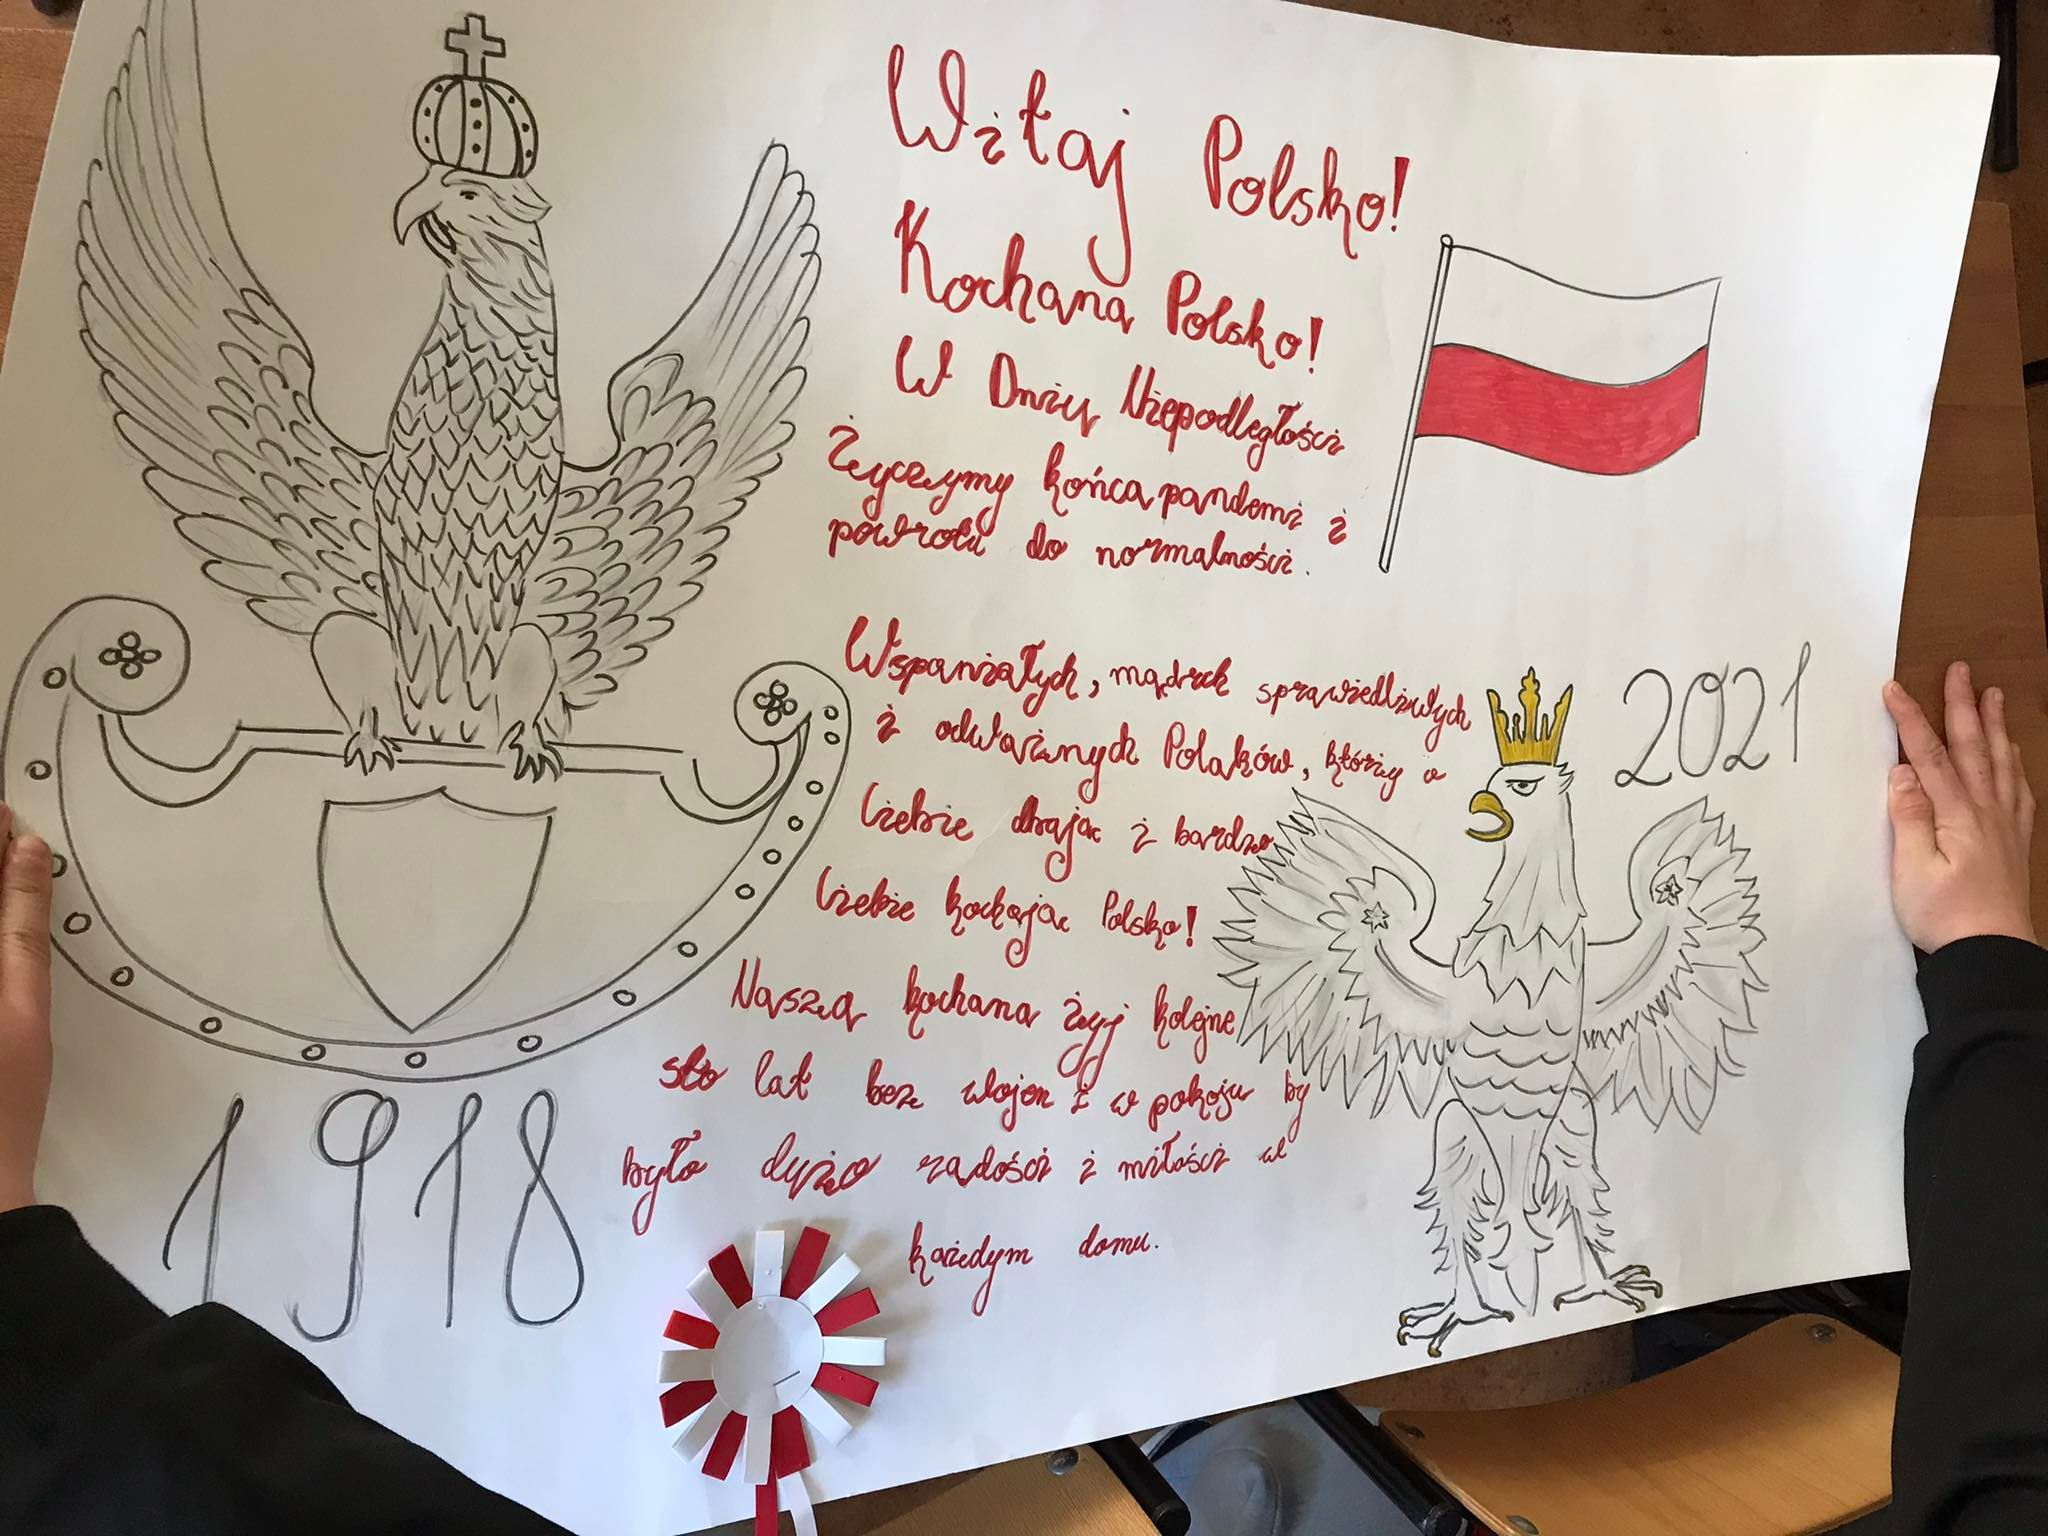 Witaj Polsko!
Kochana Polsko!
W Dniu Niepodległości
Życzymy końca pandemi i
powrotu do normalności.
Wspaniałych, mądrch sprawiedliwych
i odważnych Polaków, którzy o
Ciebie dbając i bardzo
Ciebie kochając Polsko!
Nasza kochana żyj kolejne
sto lat beze wojen i w pokoju by
było dużo radości i miłości w
każdym domu.
1918
2021